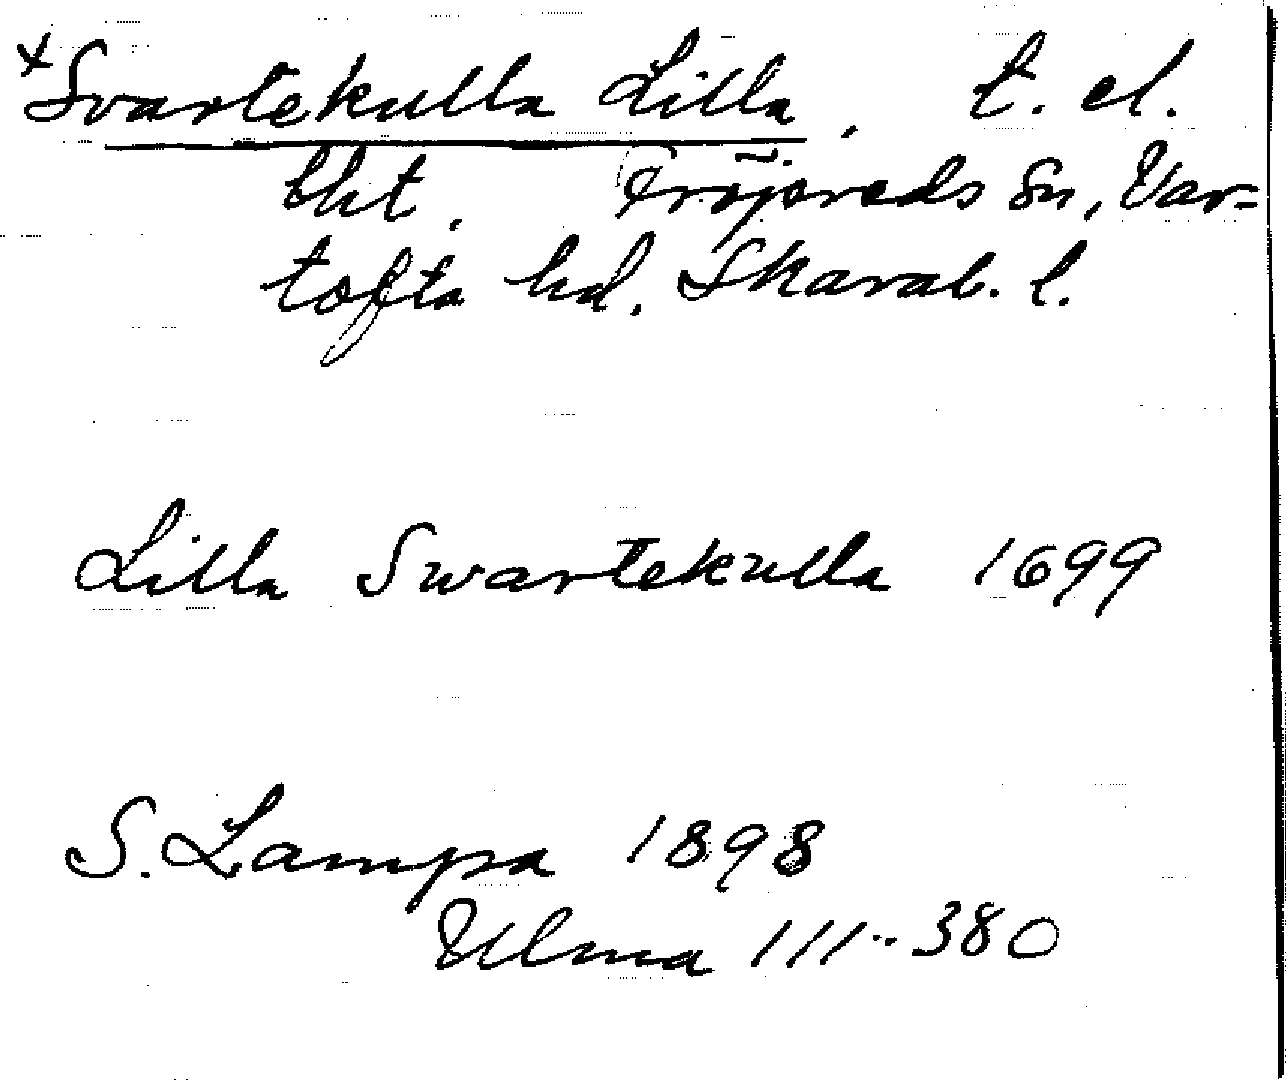 ×Svartekulla Lilla. t. el.
bht. Fröjereds Sn, Var=
tofta hd. Skarab. l.
Lilla Swartekulla 1699
S. Lampa 1898
Ulma 111:380